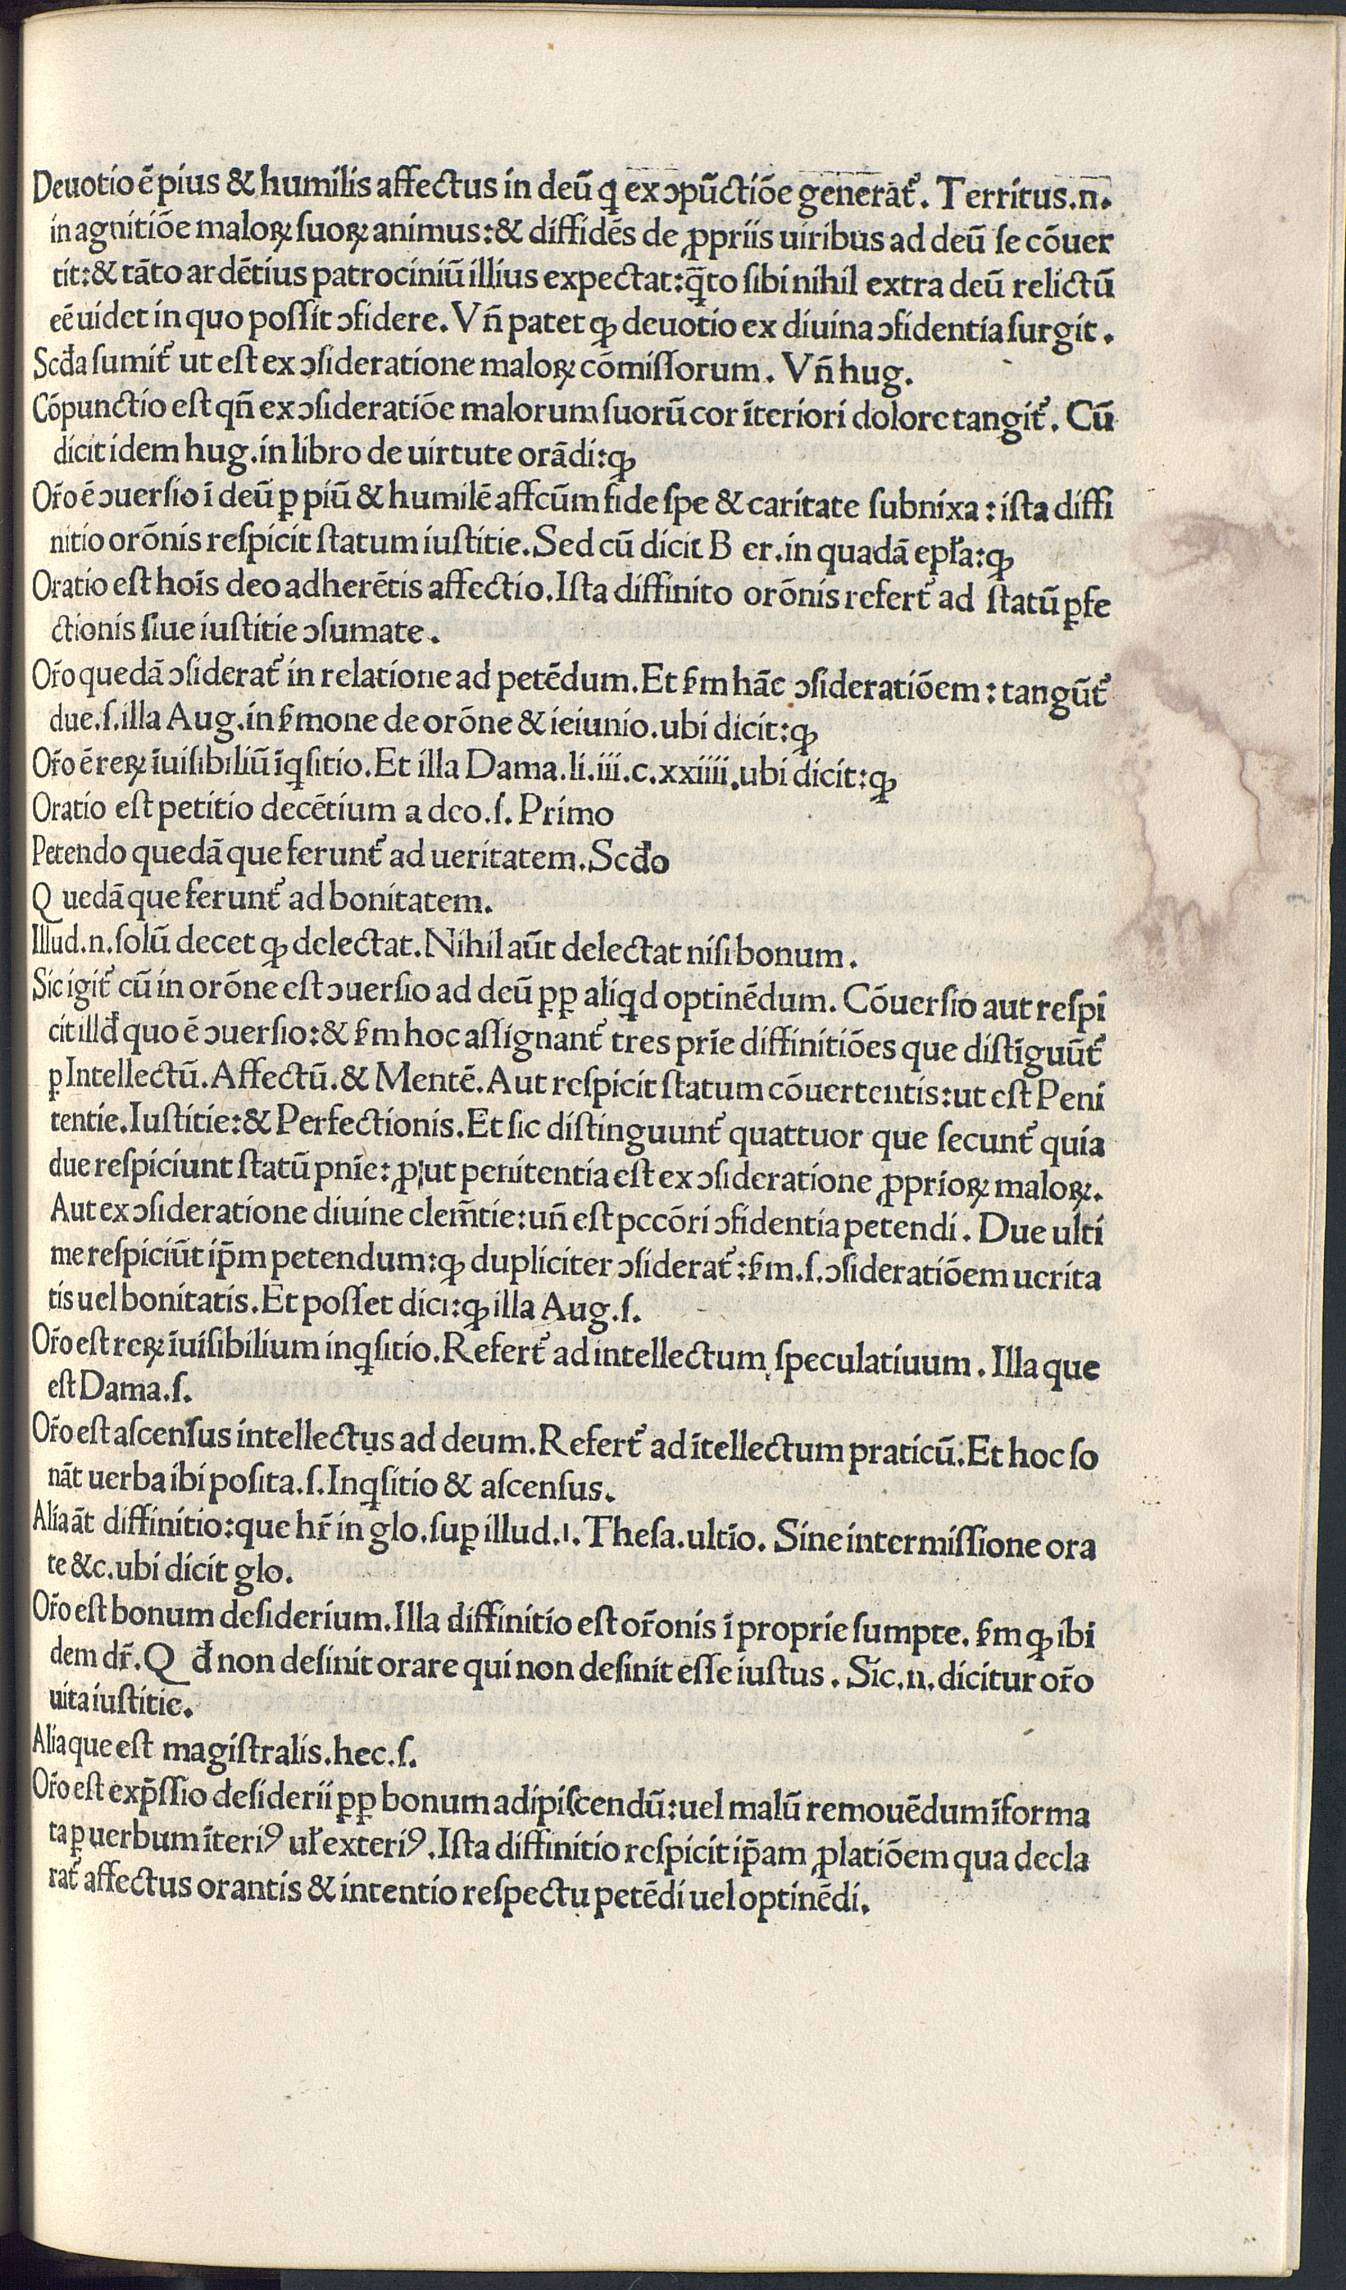 Deuotio ē pius & humilis affectus in deū ꝗ ex ↄpūctiōe generat᷑. Territus.n.
in agnitiōe maloꝝ suoꝝ animus:& diffidēs de ꝓpriis uiribus ad deū se cōuer
tit:& tāto ardētius patrociniū illius expectat:ꝗ̄to sibi nihil extra deū relictū
eē uidet in quo possit ↄfidere. Vñ patet ꝙ deuotio ex diuina ↄfidentia surgit.
Scđa sumit᷑ ut est ex ↄsideratione maloꝝ cōmissorum. Vñ hug.
Cōpunctio est qñ ex ↄsideratiōe malorum suorū cor īteriori dolore tangit᷑. Cū
dicit idem hug.in libro de uirtute orādi:ꝙ
Or̄o ē ↄuersio ī deū ꝑ piū & humilē affcūm fide spe & caritate subnixa: ista diffi
nitio orōnis respicit statum iustitie. Sed cū dicit B er.in quadā epła:ꝙ
Oratio est hoīs deo adherētis affectio. Ista diffinito orōnis refert᷑ ad statū ꝑfe
ctionis siue iustitie ↄsumate.
Or̄o quedā ↄsiderat᷑ in relatione ad petēdum. Et ẜm hāc ↄsideratiōem: tangūt᷑
due.s.illa Aug.in ẜmone de orōne & ieiunio.ubi dicit:ꝙ
Or̄o ē reꝝ īuisibiliū īꝗsitio. Et illa Dama.li.iii.c.xxiiii.ubi dicit:ꝙ
Oratio est petitio decētium a deo.s. Primo
Petendo quedā que ferunt᷑ ad ueritatem. Scđo
Q uedā que ferunt᷑ ad bonitatem.
Illud.n.solū decet ꝙ delectat. Nihil aūt delectat nisi bonum.
Sic igit᷑ cū in orōne est ↄuersio ad deū ꝑꝑ aliꝗd optinēdum. Cōuersio aut respi
cit illđ quo ē ↄuersio:& ẜm hoc assignant᷑ tres prīe diffinitiōes que distīguūt᷑
ꝑ Intellectū. Affectū.& Mentē. Aut respicit statum cōuertentis:ut est Peni
tentie. Iustitie:& Perfectionis. Et sic distinguunt᷑ quattuor que secunt᷑ quia
due respiciunt statū pnīe: ꝓut penitentia est ex ↄsideratione ꝓprioꝝ maloꝝ.
Aut ex ↄsideratione diuine clem̄tie:uñ est pccōri ↄfidentia petendi. Due ulti
me respiciūt ip̄m petendum:ꝙ dupliciter ↄsiderat᷑:ẜm.s.ↄsideratiōem uerita
tis uel bonitatis. Et posset dici:ꝙ illa Aug.s.
Or̄o est reꝝ īuisibilium inꝗsitio. Refert᷑ ad intellectum speculatiuum. Illa que
est Dama.s.
Or̄o est ascensus intellectus ad deum. Refert᷑ ad ītellectum praticū. Et hoc so
nāt uerba ibi posita.s. Inꝗsitio & ascensus.
Alia āt diffinitio:que hr̄ in glo.suꝑ illud.1. Thesa.ultīo. Sine intermissione ora
te &c.ubi dicit glo.
Or̄o est bonum desiderium. Illa diffinitio est or̄onis īproprie sumpte. ẜm ꝙ ibi
dem dr̄. Q đ non desinit orare qui non desinit esse iustus. Sic.n.dicitur or̄o
uita iustitie.
Alia que est magistralis.hec.s.
Or̄o est exp̄ssio desiderii ꝑꝑ bonum adipiscendū:uel malū remouēdum īforma
ta ꝑ uerbum īteriꝰ uł exteriꝰ. Ista diffinitio respicit ip̄am ꝓlatiōem qua decla
rat᷑ affectus orantis & intentio respectu petēdi uel optinēdi.